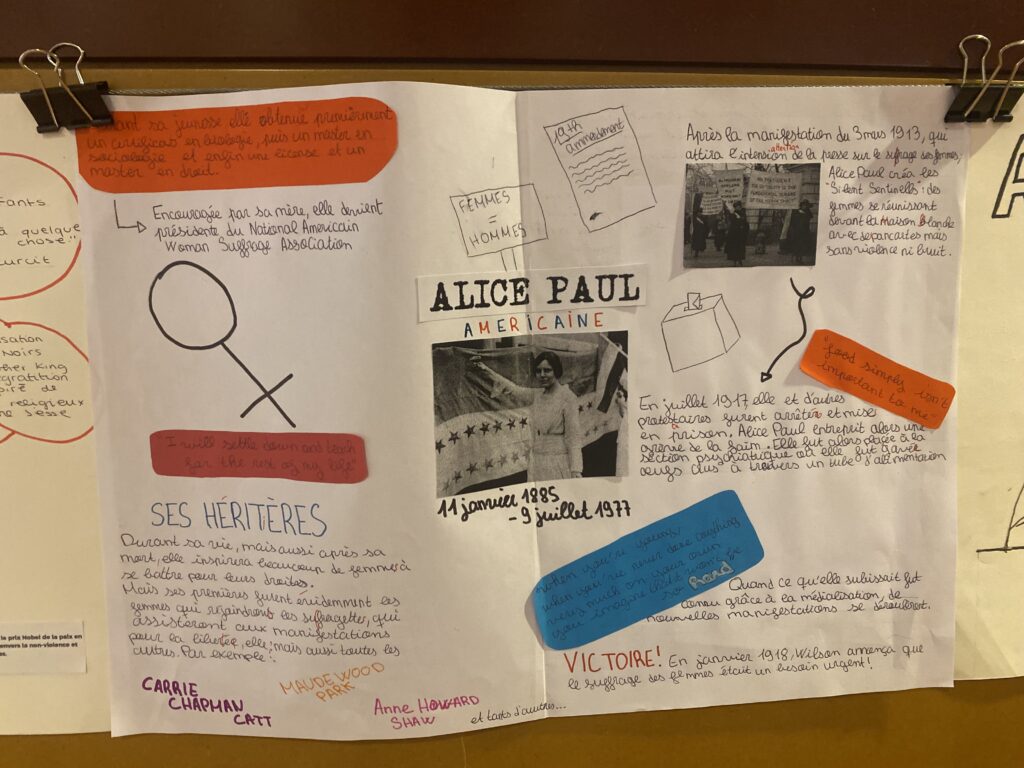 sa jeunesse elle obtenue premièrment
un certificat en biologie, puis un master en
sociologie et enfin une license et un
master en droit.
Encouragée par sa mère, elle devient
présidente du National Americain
Woman Suffrage Association
"I will settle down and teach
for the rest of my life"
SES HÉRITÈRES
Durant sa vie, mais aussi après sa
mort, elle inspirera beaucoup de femmes à
se battre pour leurs droites.
Mais ses premières furent évidemment les
femmes qui rejoindront les suffragettes, qui
assistèrent aux manifestations
pour la liberté, elle; mais aussi toutes les
autres. Par exemple:
CARRIE
CHAPMAN
CATT
MAUDE WOOD
PARK
Anne HOWARD
SHAW
et tants d'autres...
FEMMES
=
HOMMES
19th
ammendement
ALICE PAUL
AMERICAINE
11 janvier 1885
- 9 juillet 1977
Après la manifestation du 3 mars 1913, qui
attention
attira l'intension de la presse sur le sufrage des femmes,
Alice Paul créa les
"Silent Sentinells": des
femmes se réunissant
devant la Maison blanche
avec des pancartes mais
sans violence ni bruit.
"food simply isn't
important to me"
En juillet 1917, elle et d'autres
protestaires furent arrêtés et mise
en prison. Alice Paul entreprit alors une
grève de la faim. Elle fut alors placée à la
section psychiatrique où elle fut gavée
oeufs crus à travers un tube d'alimentation
when you're young,
when you've never done anything
very much on your own
you imagine that it won't be
so hard
Quand ce qu'elle subissait fut
connu grâce à la médialisation, de
nouvelles manifestations se déroulèrent.
VICTOIRE! En janvier 1918, Wilson annonça que
le suffrage des femmes était un besoin urgent!
fants
à quelque
chose"
urcit
sation
Noirs
ther King
religieux
le prix Nobel de la paix en
envers la non-violence et